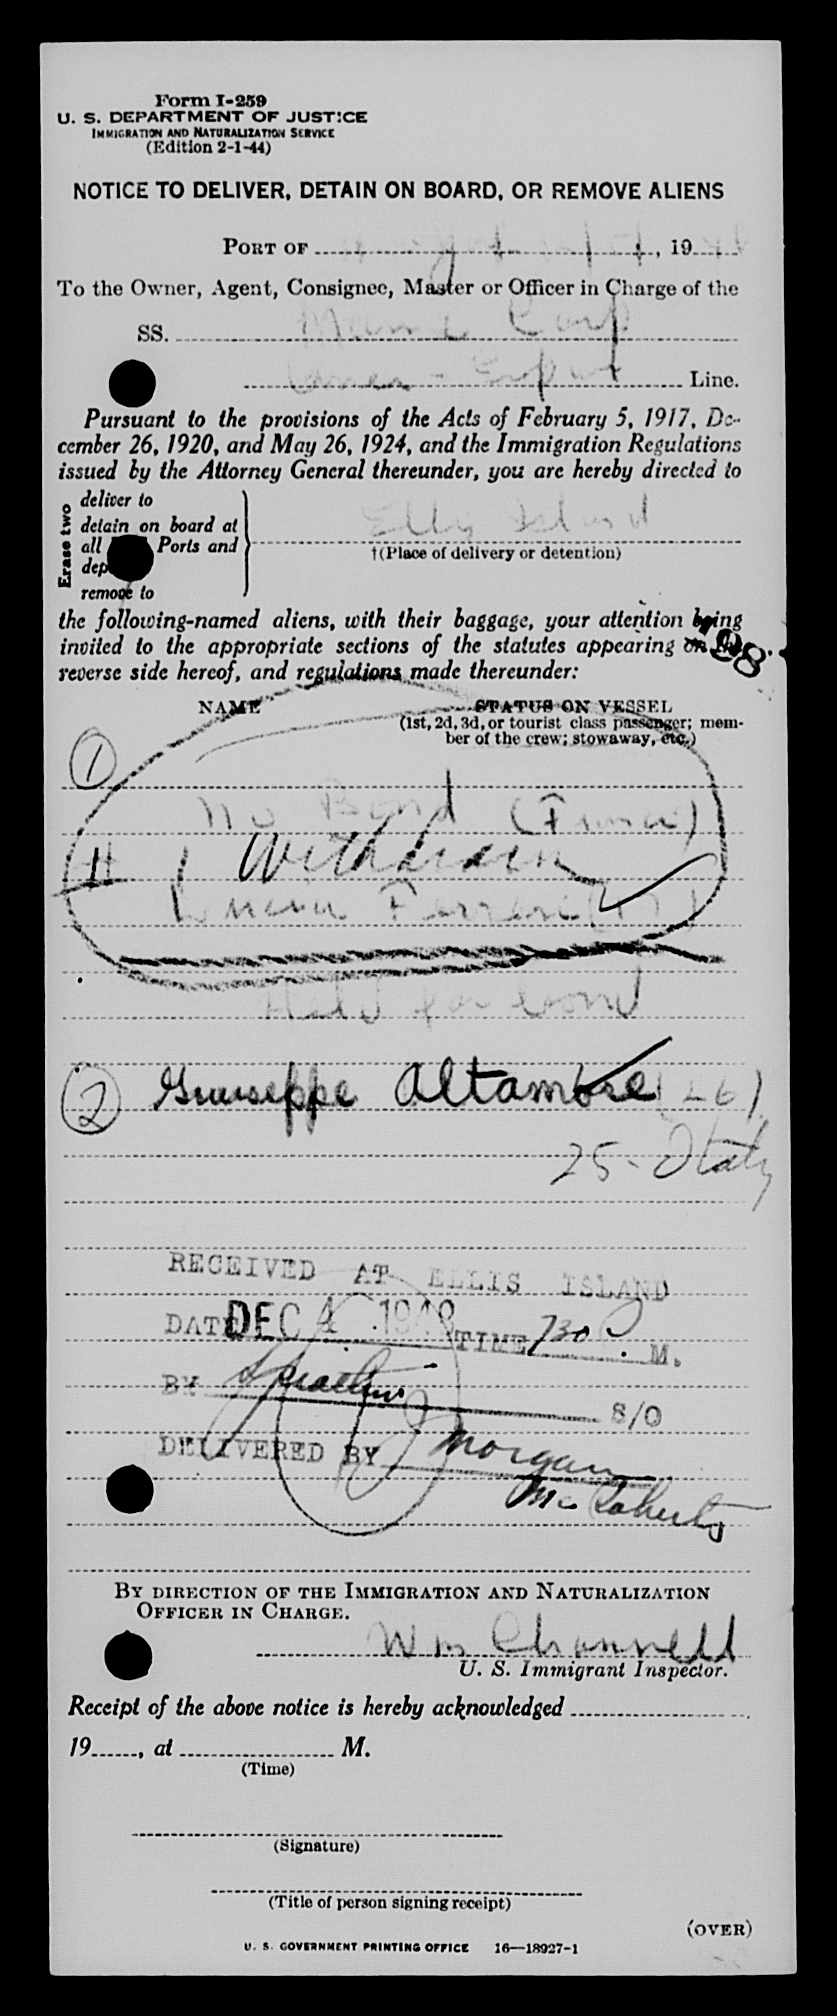 Form I-259
U. S. DEPARTMENT OF JUSTICE
IMMIGRATION AND NATURALIZATION SERVICE
(Edition 2-1-44)
NOTICE TO DELIVER, DETAIN ON BOARD, OR REMOVE ALIENS
PORT OF , 19
To the Owner, Agent, Consignee, Master or Officer in Charge of the
SS. Marine Carp
Amer - Export Line.
Pursuant to the provisions of the Acts of February 5, 1917, De-
cember 26, 1920, and May 26, 1924, and the Immigration Regulations
issued by the Attorney General thereunder, you are hereby directed to
Erase two
deliver to
detain on board at
all Ports and
dep
remove to
Ellis Island
†(Place of delivery or detention)
the following-named aliens, with their baggage, your attention being
invited to the appropriate sections of the statutes appearing on the
reverse side hereof, and regulations made thereunder:
198
NAME STATUS ON VESSEL
(1st, 2d, 3d, or tourist class passenger; mem-
ber of the crew; stowaway, etc.)
1
No Bond
Withdrawn
Held for bond
2 Giuseppe Altamore (26)
25 - Italy
RECEIVED AT ELLIS ISLAND
DATE DEC 4 1948 TIME 730 P M.
BY S/O
DELIVERED BY Morgan
By DIRECTION OF THE IMMIGRATION AND NATURALIZATION
OFFICER IN CHARGE.
Wm Channell
U. S. Immigrant Inspector.
Receipt of the above notice is hereby acknowledged
19 , at M.
(Time)
(Signature)
(Title of person signing receipt)
(OVER)
U. S. GOVERNMENT PRINTING OFFICE 16—18927-1